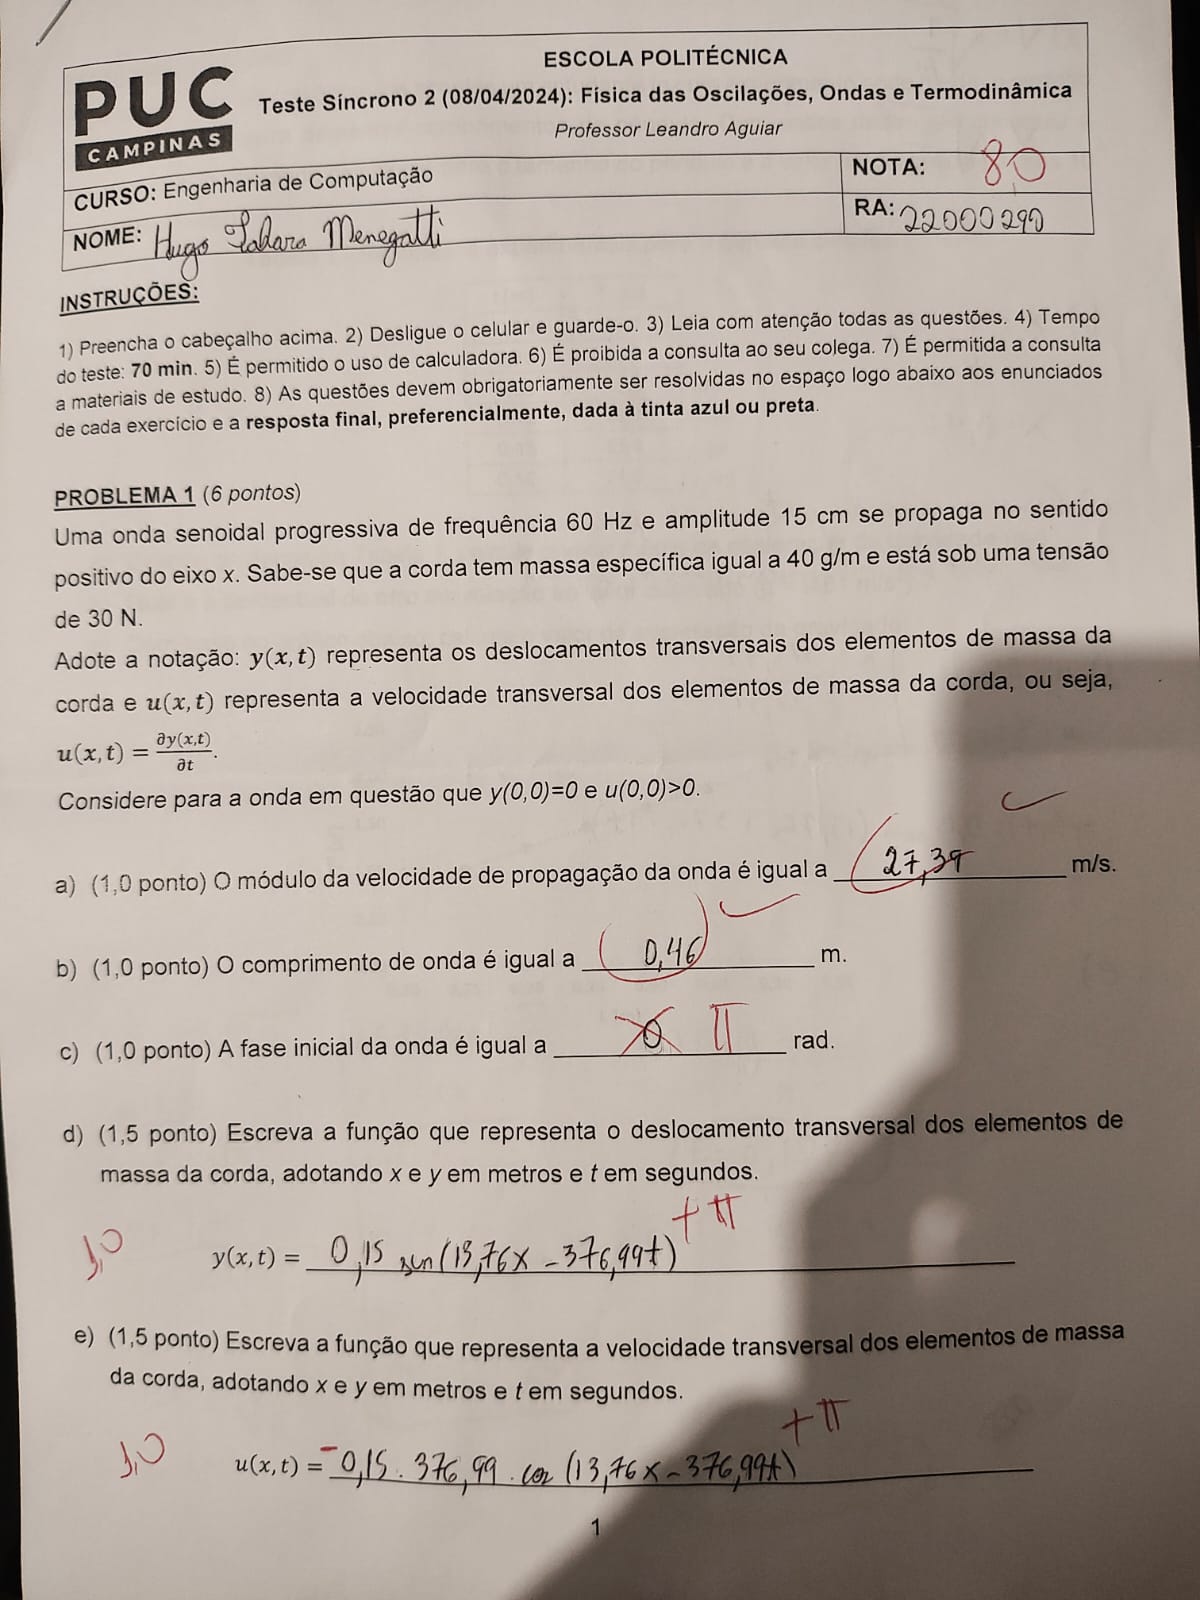 PUC
CAMPINAS
ESCOLA POLITÉCNICA
Teste Síncrono 2 (08/04/2024): Física das Oscilações, Ondas e Termodinâmica
Professor Leandro Aguiar
CURSO: Engenharia de Computação
NOTA: 8,0
NOME: Hugo Tahara Menegatti
RA: 22000290
INSTRUÇÕES:
1) Preencha o cabeçalho acima. 2) Desligue o celular e guarde-o. 3) Leia com atenção todas as questões. 4) Tempo
do teste: 70 min. 5) É permitido o uso de calculadora. 6) É proibida a consulta ao seu colega. 7) É permitida a consulta
a materiais de estudo. 8) As questões devem obrigatoriamente ser resolvidas no espaço logo abaixo aos enunciados
de cada exercício e a resposta final, preferencialmente, dada à tinta azul ou preta.
PROBLEMA 1 (6 pontos)
Uma onda senoidal progressiva de frequência 60 Hz e amplitude 15 cm se propaga no sentido
positivo do eixo x. Sabe-se que a corda tem massa específica igual a 40 g/m e está sob uma tensão
de 30 N.
Adote a notação: y(x,t) representa os deslocamentos transversais dos elementos de massa da
corda e u(x,t) representa a velocidade transversal dos elementos de massa da corda, ou seja,
u(x,t) = ∂y(x,t)/∂t.
Considere para a onda em questão que y(0,0)=0 e u(0,0)>0.
a) (1,0 ponto) O módulo da velocidade de propagação da onda é igual a 27,39 m/s.
b) (1,0 ponto) O comprimento de onda é igual a 0,46 m.
c) (1,0 ponto) A fase inicial da onda é igual a 0 π rad.
d) (1,5 ponto) Escreva a função que representa o deslocamento transversal dos elementos de
massa da corda, adotando x e y em metros e t em segundos.
+ π
1,0 y(x,t) = 0,15 sen(13,76x - 376,99t)
e) (1,5 ponto) Escreva a função que representa a velocidade transversal dos elementos de massa
da corda, adotando x e y em metros e t em segundos.
+ π
1,0 u(x,t) = -0,15 . 376,99 . cos (13,76x - 376,99t)
1